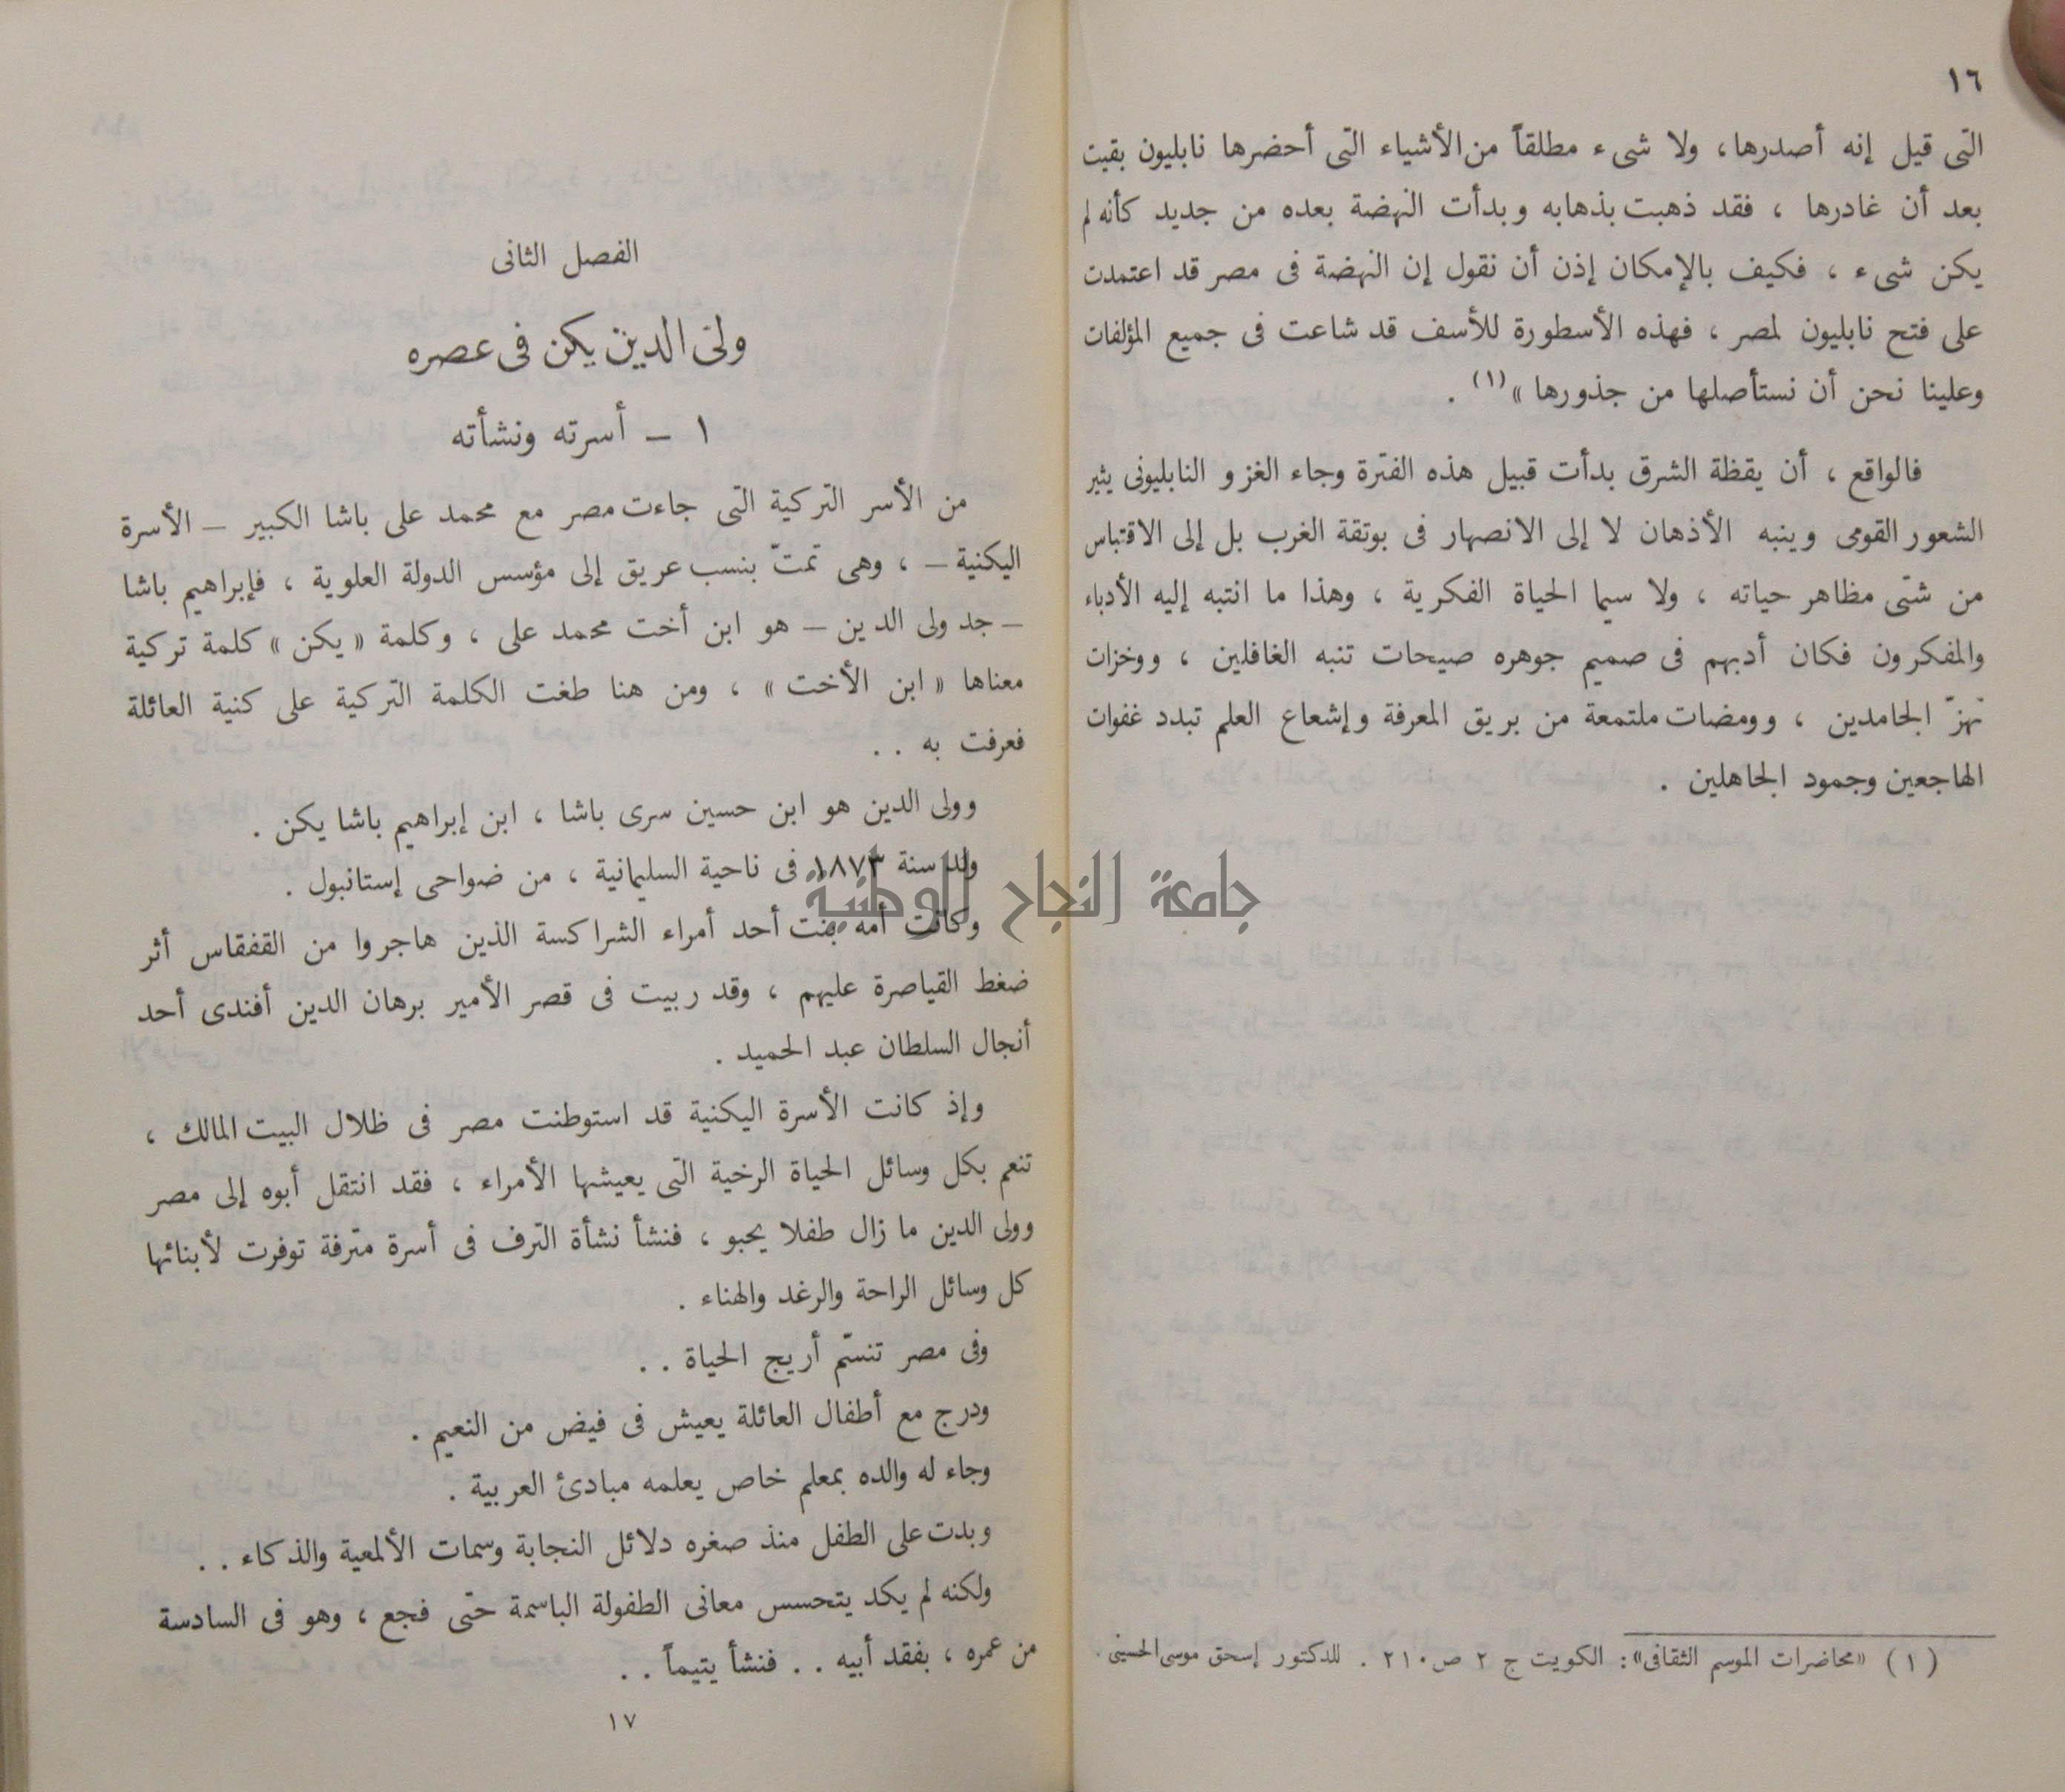 ١٦
التى قيل إنه أصدرها، ولا شىء مطلقاً من الأشياء التى أحضرها نابليون بقيت
بعد أن غادرها ، فقد ذهبت بذهابه وبدأت النهضة بعده من جديد كأنه لم
يكن شىء ، فكيف بالإمكان إذن أن نقول إن النهضة فى مصر قد اعتمدت
على فتح نابليون لمصر ، فهذه الأسطورة للأسف قد شاعت فى جميع المؤلفات
وعلينا نحن أن نستأصلها من جذورها »(١) .
فالواقع ، أن يقظة الشرق بدأت قبيل هذه الفترة وجاء الغزو النابليونى يثير
الشعور القومى وينبه الأذهان لا إلى الانصهار فى بوتقة الغرب بل إلى الاقتباس
من شتى مظاهر حياته ، ولا سيما الحياة الفكرية ، وهذا ما انتبه إليه الأدباء
والمفكرون فكان أدبهم فى صميم جوهره صيحات تنبه الغافلين ، ووخزات
تهزّ الجامدين ، وومضات ملتمعة من بريق المعرفة وإشعاع العلم تبدد غفوات
الهاجعين وجمود الجاهلين .
(١) «محاضرات الموسم الثقافى»: الكويت ج ٢ ص ٢١٠ . للدكتور إسحق موسى الحسينى .
الفصل الثانى
ولىّ الدين يكن فى عصره
١ – أسرته ونشأته
من الأسر التركية التى جاءت مصر مع محمد على باشا الكبير – الأسرة
اليكنية – ، وهى تمتّ بنسب عريق إلى مؤسس الدولة العلوية ، فإبراهيم باشا
– جد ولى الدين – هو ابن أخت محمد على ، وكلمة « يكن » كلمة تركية
معناها « ابن الأخت » ، ومن هنا طغت الكلمة التركية على كنية العائلة
فعرفت به . .
وولى الدين هو ابن حسين سرى باشا ، ابن إبراهيم باشا يكن .
ولد سنة ١٨٧٣ فى ناحية السليمانية ، من ضواحى إستانبول .
جامعة النجاح الوطنية
وكانت أمه بنت أحد أمراء الشراكسة الذين هاجروا من القفقاس أثر
ضغط القياصرة عليهم ، وقد ربيت فى قصر الأمير برهان الدين أفندى أحد
أنجال السلطان عبد الحميد .
وإذ كانت الأسرة اليكنية قد استوطنت مصر فى ظلال البيت المالك ،
تنعم بكل وسائل الحياة الرخية التى يعيشها الأمراء ، فقد انتقل أبوه إلى مصر
وولى الدين ما زال طفلا يحبو ، فنشأ نشأة الترف فى أسرة مترفة توفرت لأبنائها
كل وسائل الراحة والرغد والهناء .
وفى مصر تنسّم أريج الحياة . .
ودرج مع أطفال العائلة يعيش فى فيض من النعيم .
وجاء له والده بمعلم خاص يعلمه مبادئ العربية .
وبدت على الطفل منذ صغره دلائل النجابة وسمات الألمعية والذكاء . .
ولكنه لم يكد يتحسس معانى الطفولة الباسمة حتى فجع ، وهو فى السادسة
من عمره ، بفقد أبيه . . فنشأ يتيماً . .
١٧